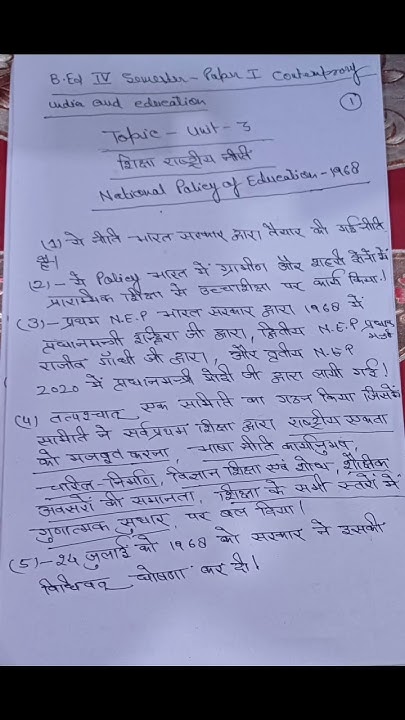 B.Ed IV Semester - Paper I Contemprory
india and education
1
Topic - Unit - 3
शिक्षा राष्ट्रीय नीती
National Policy of Education - 1968
(1) ये नीति भारत सरकार द्वारा तैयार की गई नीति
है।
(2) - ये Policy भारत में ग्रामीण और शहरी क्षेत्रों में
प्रारम्भिक शिक्षा से उच्चशिक्षा पर कार्य किया।
(3) - प्रथम N.E.P भारत सरकार द्वारा 1968 में
प्रधानमन्त्री इन्द्रिरा जी द्वारा, द्वितीय N.E.P प्रधान
मंत्री
राजीव गाँधी जी द्वारा, और तृतीय N.E.P
2020 में प्रधानमन्त्री मोदी जी द्वारा लायी गई।
(4) तत्पश्चात् एक समिति का गठन किया जिसके
समिति ने सर्वप्रथम शिक्षा द्वारा राष्ट्रीय एकता
को मजबूत करना, भाषा नीति
चरित्र-निर्माण, विज्ञान शिक्षा एवं शोध, शैक्षिक
अवसरों की समानता, शिक्षा के सभी स्तरों में
गुणात्मक सुधार, पर बल दिया।
(5) - 24 जुलाई को 1968 को सरकार ने इसकी
विधिवत् घोषणा कर दी।